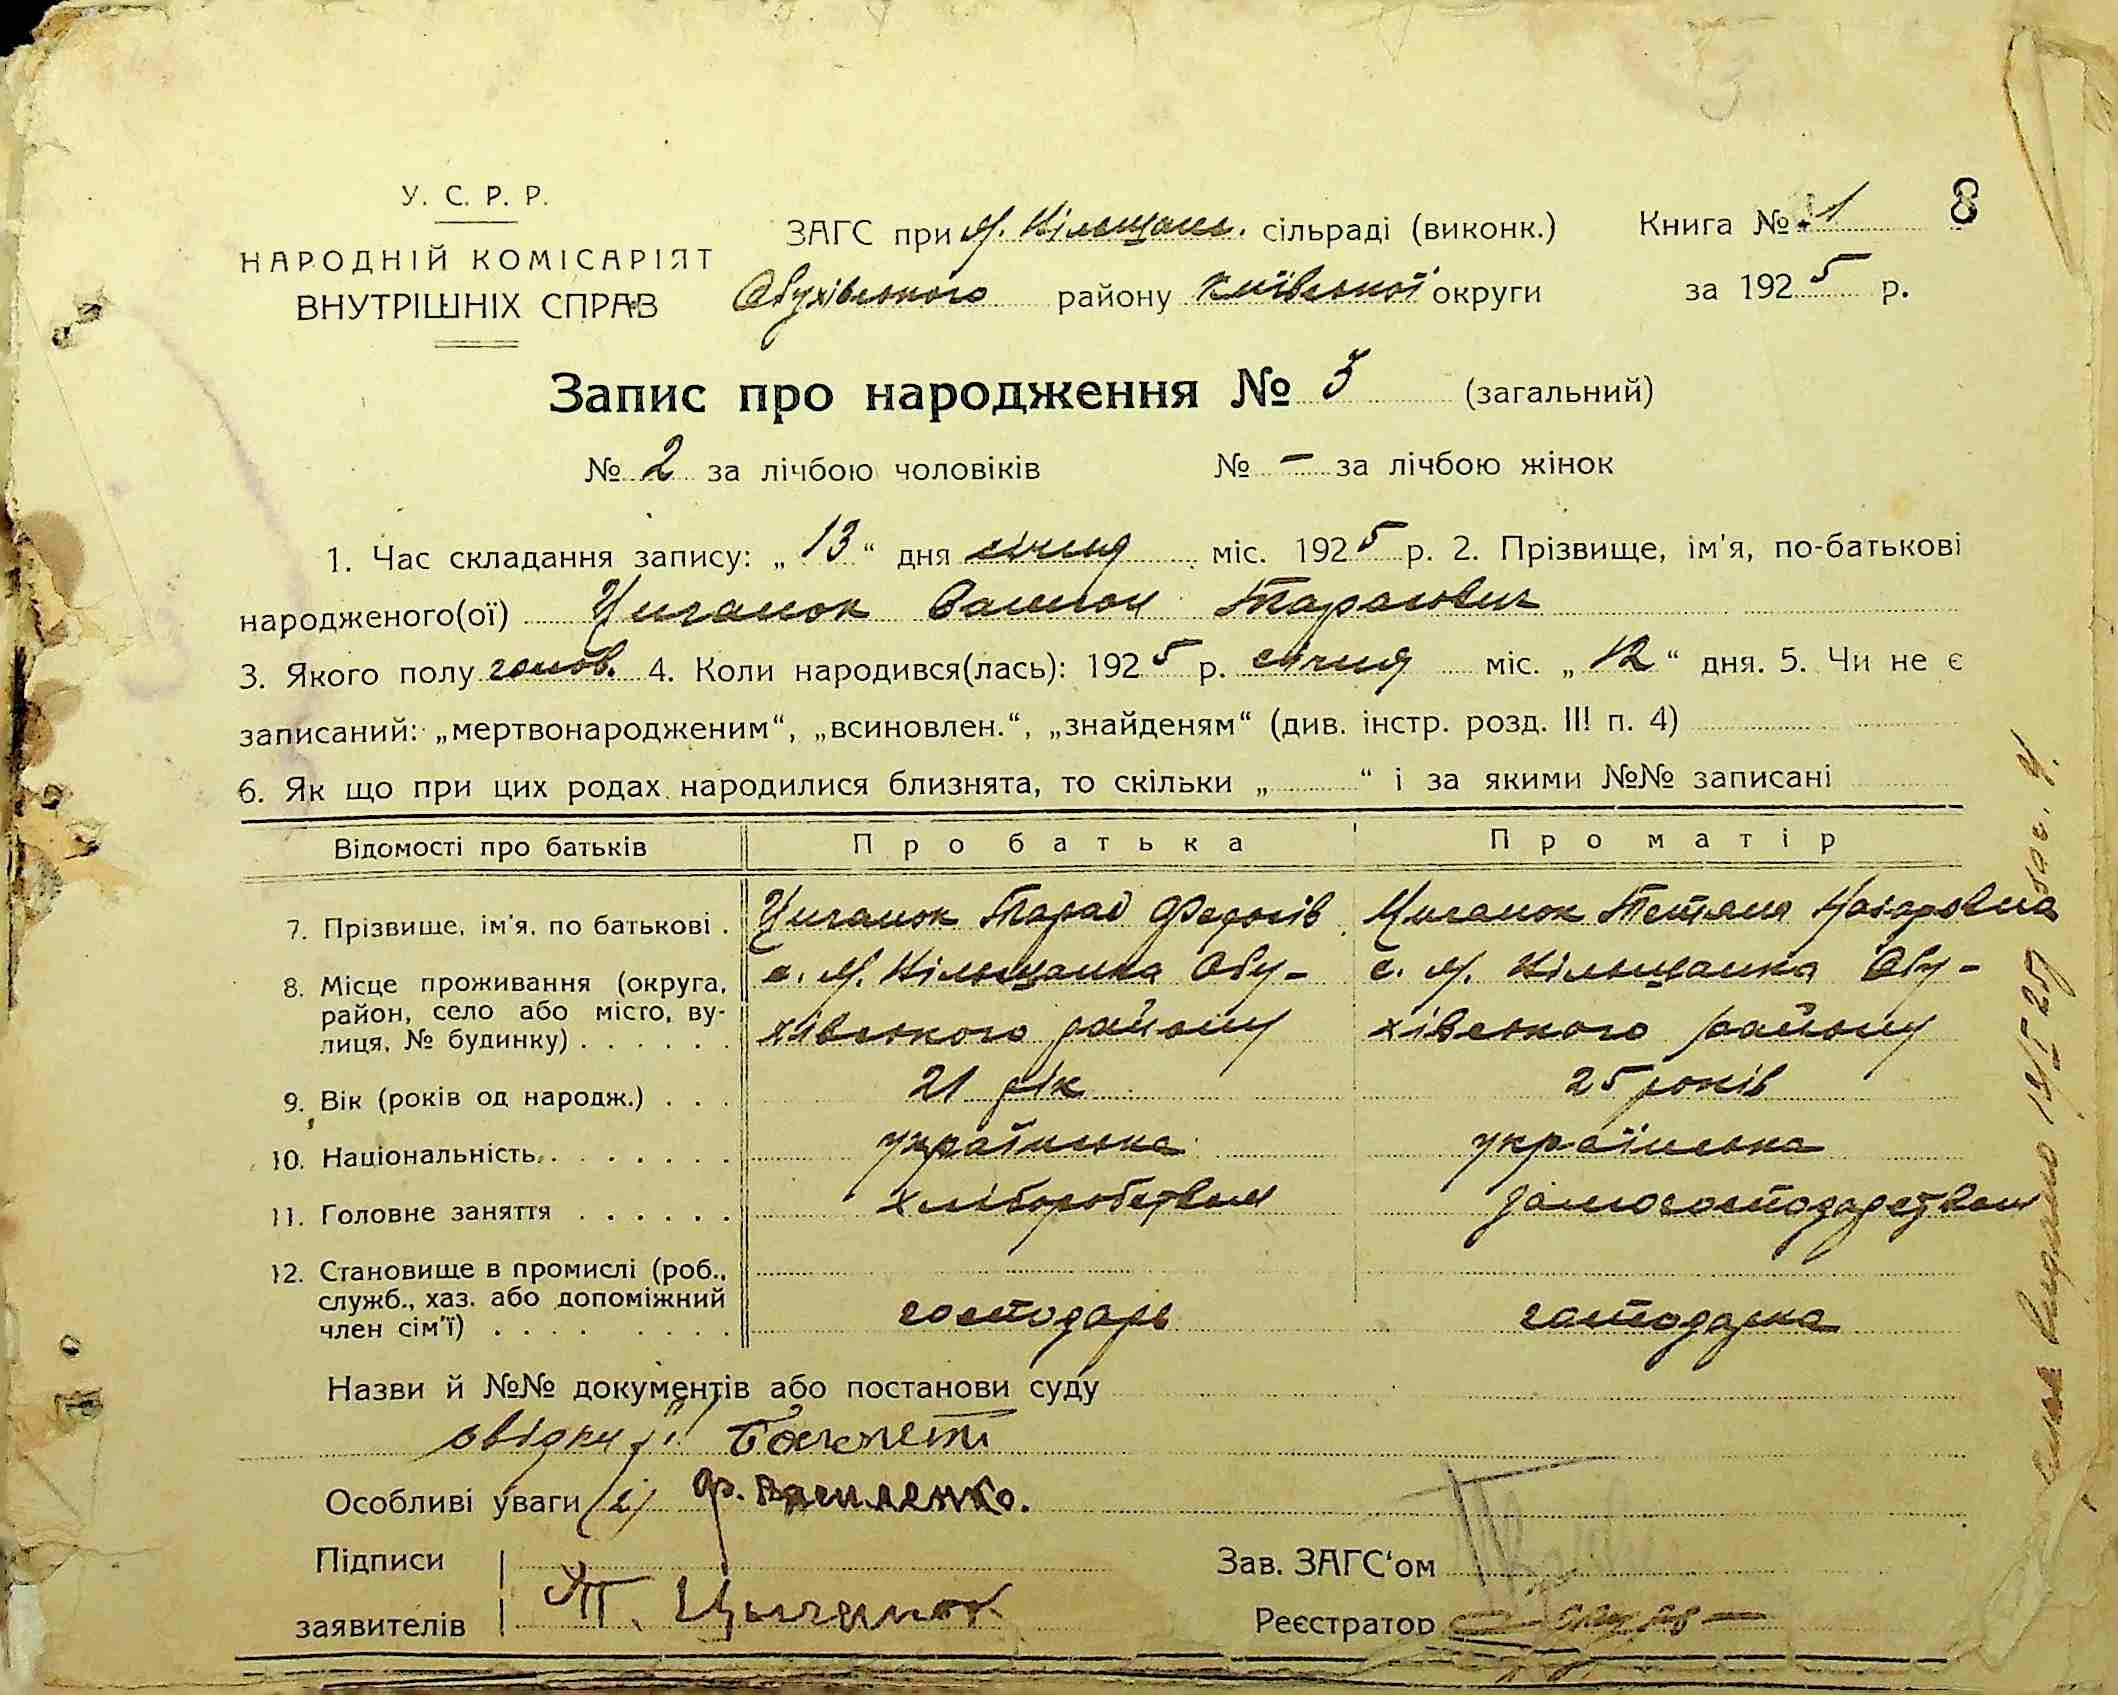 У. С. Р. Р.
НАРОДНІЙ КОМІСАРІЯТ
ВНУТРІШНІХ СПРАВ
ЗАГС при М. Вільшан. сільраді (виконк.)
Обухівського району Київської округи
Книга № 1
8
за 1925 р.
Запис про народження № 3 (загальний)
№ 2 за лічбою чоловіків № – за лічбою жінок
1. Час складання запису: „ 13 “ дня січня міс. 1925 р. 2. Прізвище, ім'я, по-батькові
народженого(ої) Циганок Тарасович
3. Якого полу чолов. 4. Коли народився(лась): 1925 р. січня міс. „ 12 “ дня. 5. Чи не є
записаний: „мертвонародженим“, „всиновлен.“, „знайденям“ (див. інстр. розд. III п. 4)
6. Як що при цих родах народилися близнята, то скільки „ “ і за якими №№ записані
Відомості про батьків Про батька Про матір
7. Прізвище, ім'я, по батькові . Циганок Тарас Федосів Циганок Тетяна Назаровна
8. Місце проживання (округа, район, село або місто, вулиця, № будинку) . . . . . .
с. М. Вільщанка Обу-
хівського району
с. М. Вільщанка Обу-
хівського району
9. Вік (років од народж.) . . . 21 рік 25 років
10. Національність. . . . . . . . українська українська
11. Головне заняття . . . . . . хліборобством домогосподарством
12. Становище в промислі (роб., служб., хаз. або допоміжний член сім'ї) . . . . . . . . . господарь господарка
Назви й №№ документів або постанови суду
свідки:
Особливі уваги Ф. Василенко.
Підписи
заявителів Т. Цыганок
Зав. ЗАГС'ом
Реєстратор